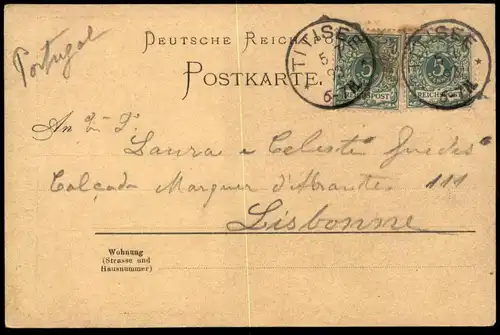 Portugal
DEUTSCHE REICHS
POSTKARTE.
TITISEE
5
6-7N.
5
POST
TITISEE
5
REICHSPOST
6-7N.
An
Laura e Celeste Guedes
Calçada Marquez d'Abrantes 111
Lisbonne
Wohnung
(Strasse und
Hausnummer)